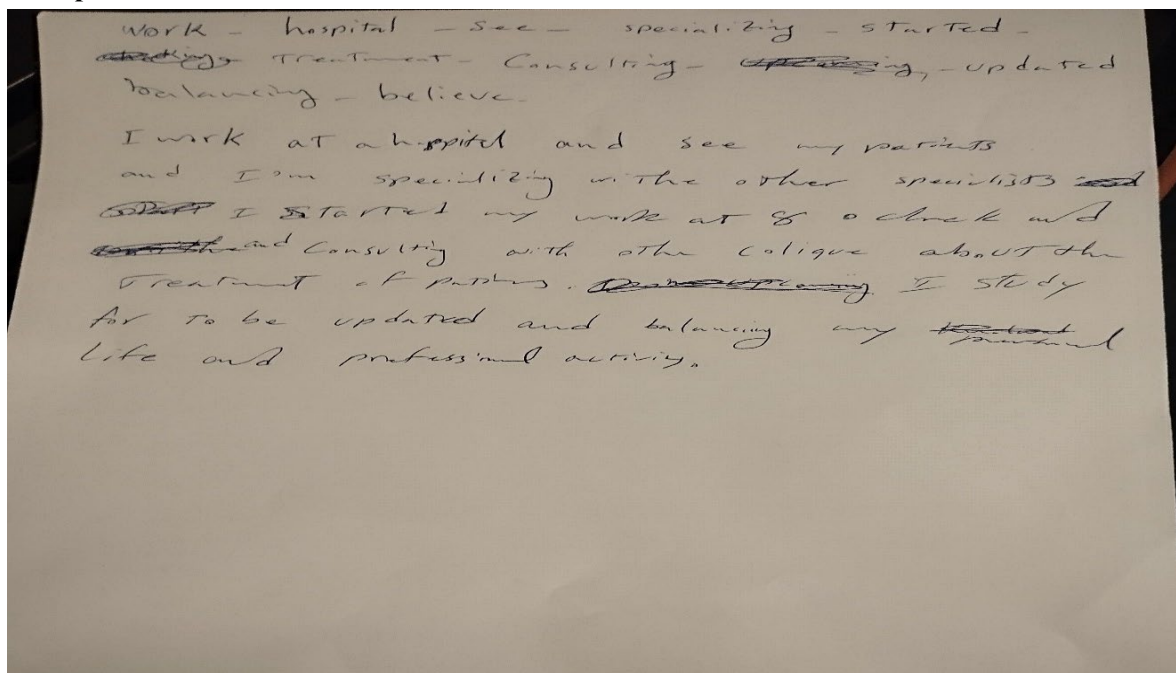 work - hospital - see - specializing - started -
Treatment - Consulting - updated
balancing - believe.
I work at a hospital and see my patients
and I am specializing withe other specialists
I started my work at 8 o clock and
and Consulting with othe colique about the
Treatment of patiens. I study
for To be updated and balancing my personal
life and professional activity.